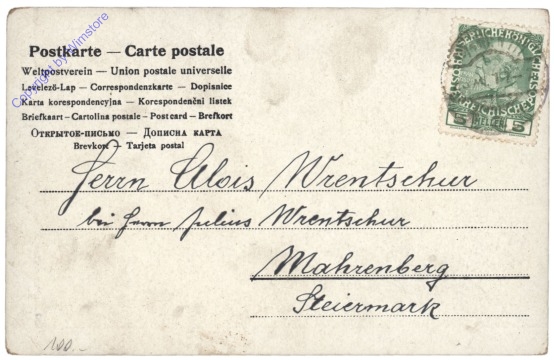 Postkarte — Carte postale
Weltpostverein — Union postale universelle
Levelező-Lap — Correspondenzkarte — Dopisnice
Karta korespondencyjna — Korespondenční lístek
Briefkaart – Cartolina postale – Post card – Brefkort
Открытое-письмо — Дописна карта
Brevkort — Tarjeta postal
Copyright by Wimstore
5 HELLER 5
Herrn Alois Wrentschur
bei Herrn Julius Wrentschur
Mahrenberg
Steiermark
100.-